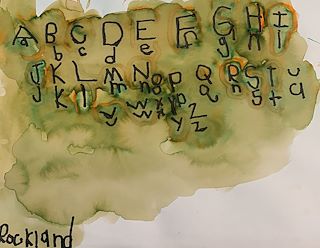 A B C D E F G H I
b c d e g h
J K L M N o P Q R S T U
j k l m n p q r s t
v w x y z
Rockland